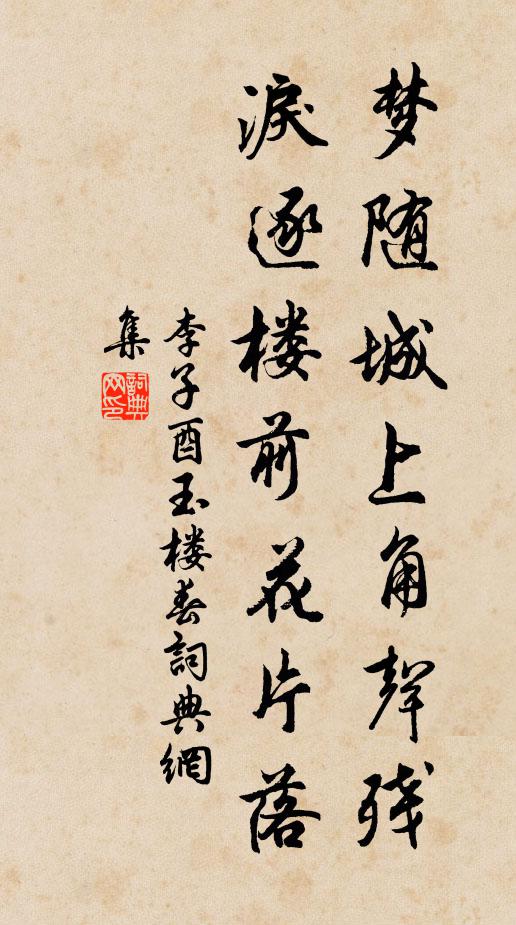 梦随城上角聲残
淚逐楼前花片落
李子酉玉楼春詞典網
集
詞典网印